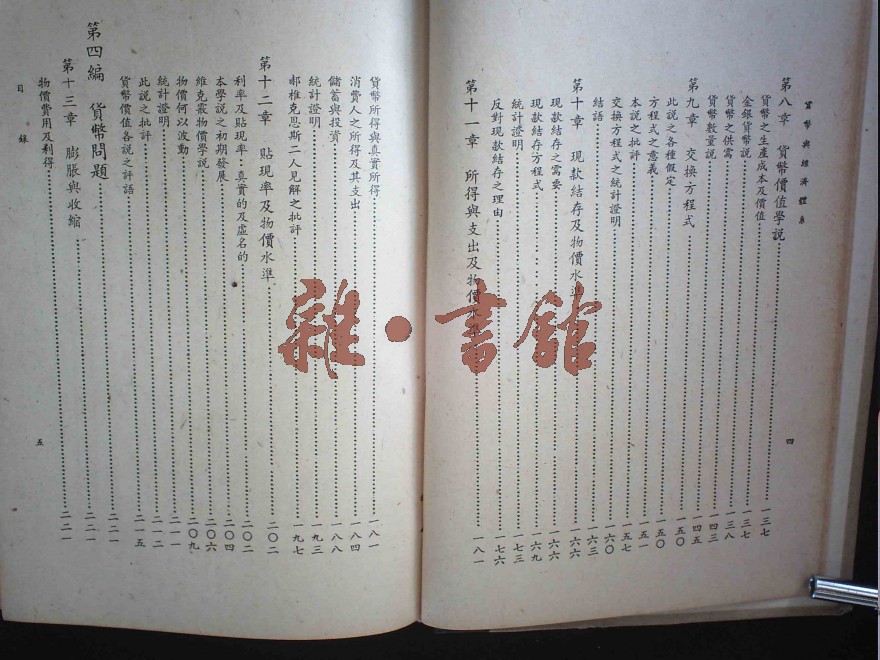 貨幣與經濟體系
第八章 貨幣價值學說……一三七
貨幣之生產成本及價值……一三七
金銀貨幣說……一三八
貨幣之供需……一四三
貨幣數量說……一四五
第九章 交換方程式……一五〇
此說之各種假定……一五〇
方程式之意義……一五一
本說之批評……一五七
交換方程式之統計證明……一六〇
結語……一六三
第十章 現款結存及物價水準……一六六
現款結存之需要……一六六
現款結存方程式……一六九
統計證明……一七三
反對現款結存之理由……一七六
第十一章 所得與支出及物價水準……一八一
四
貨幣所得與真實所得……一八一
消費人之所得及其支出……一八四
儲蓄與投資……一八八
統計證明……一九三
郝維克思斯二人見解之批評……一九七
第十二章 貼現率及物價水準……二〇二
利率及貼現率：真實的及虛名的……二〇二
本學說之初期發展……二〇四
維克裴物價學說……二〇六
物價何以波動……二〇九
統計證明……二一一
此說之批評……二一二
貨幣價值各說之評語……二一五
第四編 貨幣問題……二二一
第十三章 膨脹與收縮……二二一
物價費用及利得……二二一
目錄
五
雜·書館